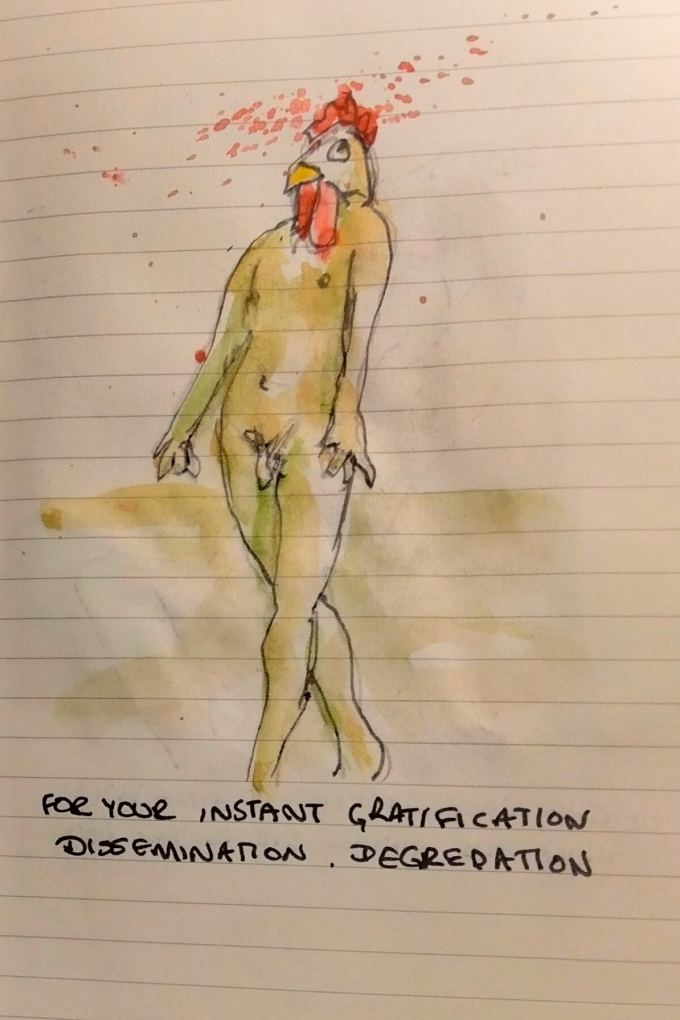 FOR YOUR INSTANT GRATIFICATION
DISSEMINATION . DEGREDATION